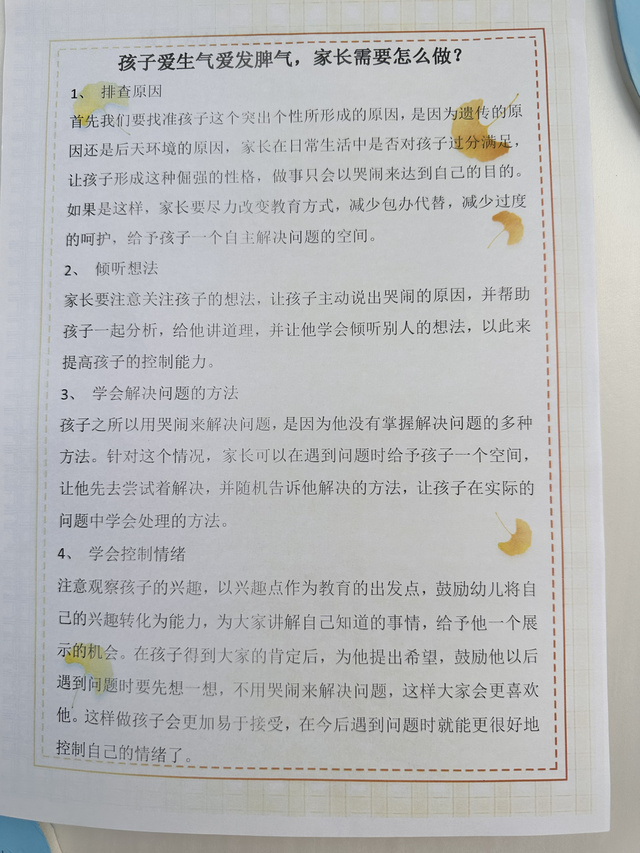 孩子爱生气爱发脾气，家长需要怎么做？
1、 排查原因
首先我们要找准孩子这个突出个性所形成的原因，是因为遗传的原
因还是后天环境的原因，家长在日常生活中是否对孩子过分满足，
让孩子形成这种倔强的性格，做事只会以哭闹来达到自己的目的。
如果是这样，家长要尽力改变教育方式，减少包办代替，减少过度
的呵护，给予孩子一个自主解决问题的空间。
2、 倾听想法
家长要注意关注孩子的想法，让孩子主动说出哭闹的原因，并帮助
孩子一起分析，给他讲道理，并让他学会倾听别人的想法，以此来
提高孩子的控制能力。
3、 学会解决问题的方法
孩子之所以用哭闹来解决问题，是因为他没有掌握解决问题的多种
方法。针对这个情况，家长可以在遇到问题时给予孩子一个空间，
让他先去尝试着解决，并随机告诉他解决的方法，让孩子在实际的
问题中学会处理的方法。
4、 学会控制情绪
注意观察孩子的兴趣，以兴趣点作为教育的出发点，鼓励幼儿将自
己的兴趣转化为能力，为大家讲解自己知道的事情，给予他一个展
示的机会。在孩子得到大家的肯定后，为他提出希望，鼓励他以后
遇到问题时要先想一想，不用哭闹来解决问题，这样大家会更喜欢
他。这样做孩子会更加易于接受，在今后遇到问题时就能更很好地
控制自己的情绪了。